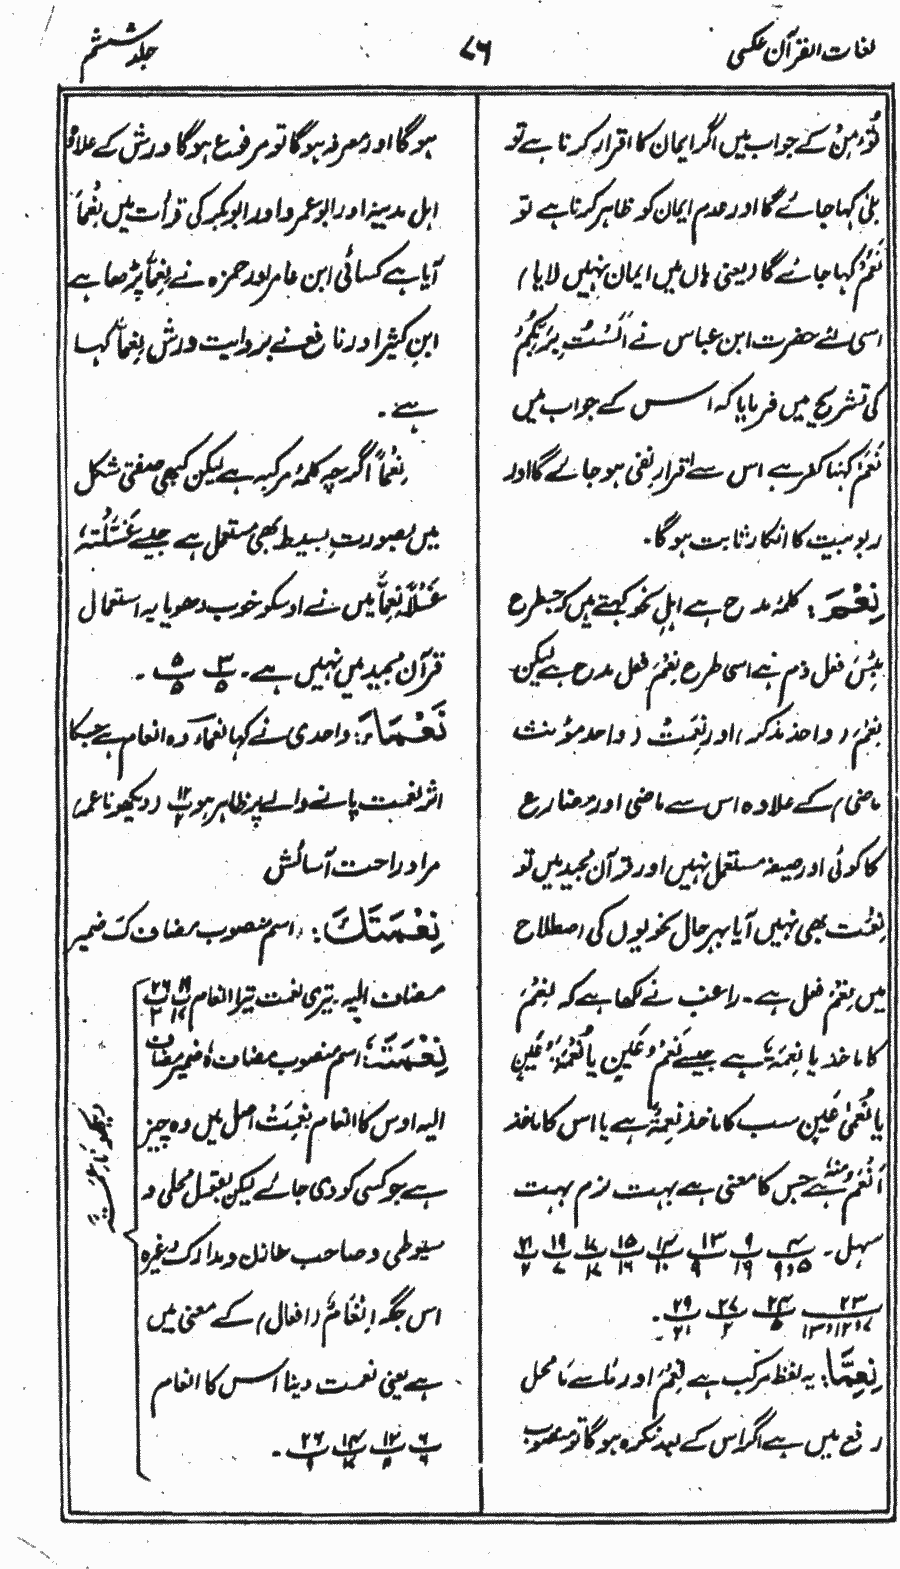 لغات القرآن عکسی
۷۶
جلد ششم
تُؤْمِنْ کے جواب میں اگر ایمان کا اقرار کرنا ہے تو
بلیٰ کہا جائے گا اور عدم ایمان کو ظاہر کرنا ہے تو
نَعَمْ کہا جائے گا (یعنی ہاں میں ایمان نہیں لایا)
اسی لئے حضرت ابن عباس نے اَلَسْتُ بِرَبِّکُمْ
کی تشریح میں فرمایا کہ اس کے جواب میں
نَعَمْ کہنا کفر ہے اس سے اقرار نفی ہو جائے گا اور
ربوبیت کا انکار ثابت ہوگا۔
نِعْمَ : کلمۂ مدح ہے اہل نحو کہتے ہیں کہ جسطرح
بِئْسَ فعل ذم ہے اسی طرح نِعْمَ فعل مدح ہے لیکن
نِعْمَ (واحد مذکر) اور نِعْمَتْ (واحد مؤنث
ماضی) کے علاوہ اس سے ماضی اور مضارع
کا کوئی اور صیغہ مستعمل نہیں اور قرآن مجید میں تو
نِعْمَتْ بھی نہیں آیا بہر حال نحویوں کی اصطلاح
میں نِعْمَ فعل ہے۔ راغب نے لکھا ہے کہ نِعْمَ
کا ماخذ یا نِعْمَۃٌ ہے جیسے نَعَمْ وعَین یا نُعْمَۃَ عَینٍ
یا نُعْمیٰ عَینٍ سب کا ماخذ نِعْمَۃٌ ہے یا اس کا ماخذ
اَنْعَمَ منہ ہے جس کا معنی ہے بہت نرم بہت
سہل۔
نِعِمَّا : یہ لفظ مرکب ہے نِعْمَ اور مَا سے مَا محل
رفع میں ہے اگر اس کے بعد نکرہ ہوگا تو منصوب
ہوگا اور معرفہ ہوگا تو مرفوع ہوگا ورش کے علاوہ
اہل مدینہ اور ابوعمرو اور ابوبکر کی قرأت میں نِعْمَّا
آیا ہے کسائی ابن عامر اور حمزہ نے نَعِمَّا پڑھا ہے
ابن کثیر اور نافع نے بروایت ورش نِعِمَّا کہا
ہے۔
نِعِمَّا اگرچہ کلمۂ مرکبہ ہے لیکن کبھی صفتی شکل
میں بصورتِ بسیط بھی مستعمل ہے جیسے غَسَلْتُہٗ
غَسْلاً نِعِمَّا میں نے اوسکو خوب دھویا یہ استعمال
قرآن مجید میں نہیں ہے۔ ۳/۵ پ ۵/۵ پ۔
نَعْمَاءَ : واحدی نے کہا نعماء وہ انعام ہے جسکا
اثر نعمت پانے والے پر ظاہر ہو ۱۲/۲ پ (دیکھو ناعمہ)
مراد راحت آسائش
نِعْمَتَكَ : اسم منصوب مضاف کَ ضمیر
مضاف الیہ۔ تیری نعمت تیرا انعام
نِعْمَتَہٗ : اسم منصوب مضاف ہٗ ضمیر مضاف
الیہ اوس کا انعام نِعْمَتْ اصل میں وہ چیز
ہے جو کسی کو دی جائے لیکن بقول محلی و
سیوطی و صاحب خازن و مدارک وغیرہ
اس جگہ اِنْعَامٌ (افعال) کے معنی میں
ہے یعنی نعمت دینا اس کا انعام